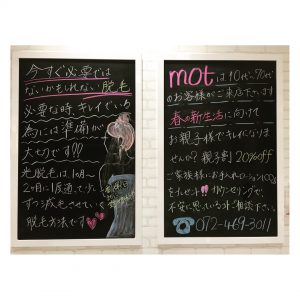 今すぐ必要では
ないかもしれない脱毛
必要な時キレイでいる
為には準備が
大切です!!
光脱毛は1ヵ月〜
2ヶ月に1度通って少し
ずつ減毛させていく
脱毛方法です
motは10代〜70代
のお客様がご来店下さいます
春の新生活に向けて
お親子様でキレイになりま
せんか? 親子割20%off
ご家族様にお手入れローション100g
をプレゼント!! カウンセリングで、
不安に思っている事ご相談下さい。
☎072-469-3011